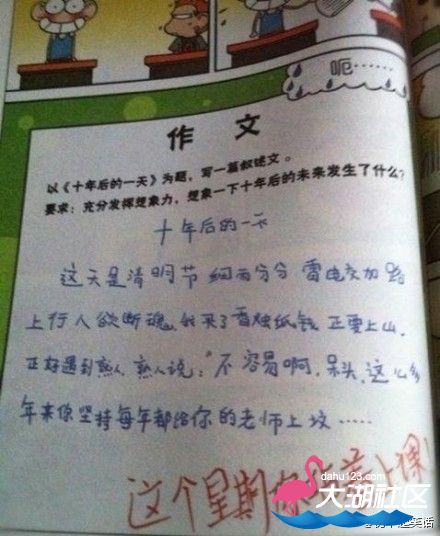 呃……
作 文
以《十年后的一天》为题，写一篇叙述文。
要求：充分发挥想象力，想象一下十年后的未来发生了什么？
十年后的一天
这天是清明节 细雨分分 雷电交加 路
上行人欲断魂，我买了香烛纸钱 正要上山，
正好遇到熟人，熟人说：“不容易啊，呆头，这么多
年来你坚持每年都给你的老师上坟……
这个星期 上课！
dahu123.com
大湖社区